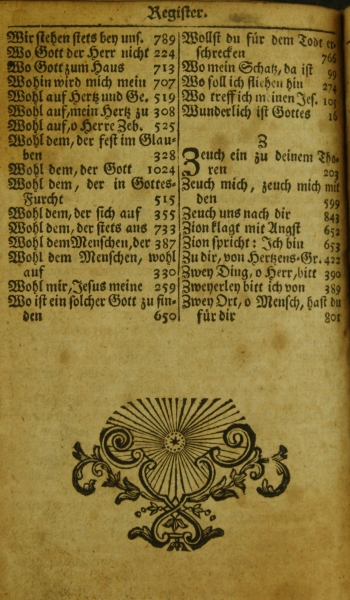 Register.
Wir stehen stets bey uns. 789
Wo Gott der Herr nicht 224
Wo Gott zum Haus 713
Wohin wird mich mein 707
Wohl auf Hertz und Ge. 519
Wohl auf, mein Hertz zu 308
Wohl auf, o Herre Zeb. 525
Wohl dem, der fest im Glau-
ben 328
Wohl dem, der Gott 1024
Wohl dem, der in Gottes-
Furcht 515
Wohl dem, der sich auf 355
Wohl dem, der stets ans 733
Wohl dem Menschen, der 387
Wohl dem Menschen, wohl
auf 330
Wohl mir, Jesus meine 259
Wo ist ein solcher Gott zu fin-
den 650
Wollst du für dem Todt er-
schrecken 766
Wo mein Schatz, da ist 99
Wo soll ich fliehen hin 274
Wo treff ich meinen Jes. 105
Wunderlich ist Gottes 16
Z
Zeuch ein zu deinem Tho-
ren 203
Zeuch mich, zeuch mich mit
den 599
Zeuch uns nach dir 843
Zion klagt mit Angst 652
Zion spricht: Ich bin 653
Zu dir, von Hertzens-Gr. 422
Zwey Ding, o Herr, bitt 390
Zweyerley bitt ich von 389
Zwey Ort, o Mensch, hast du
für dir 801